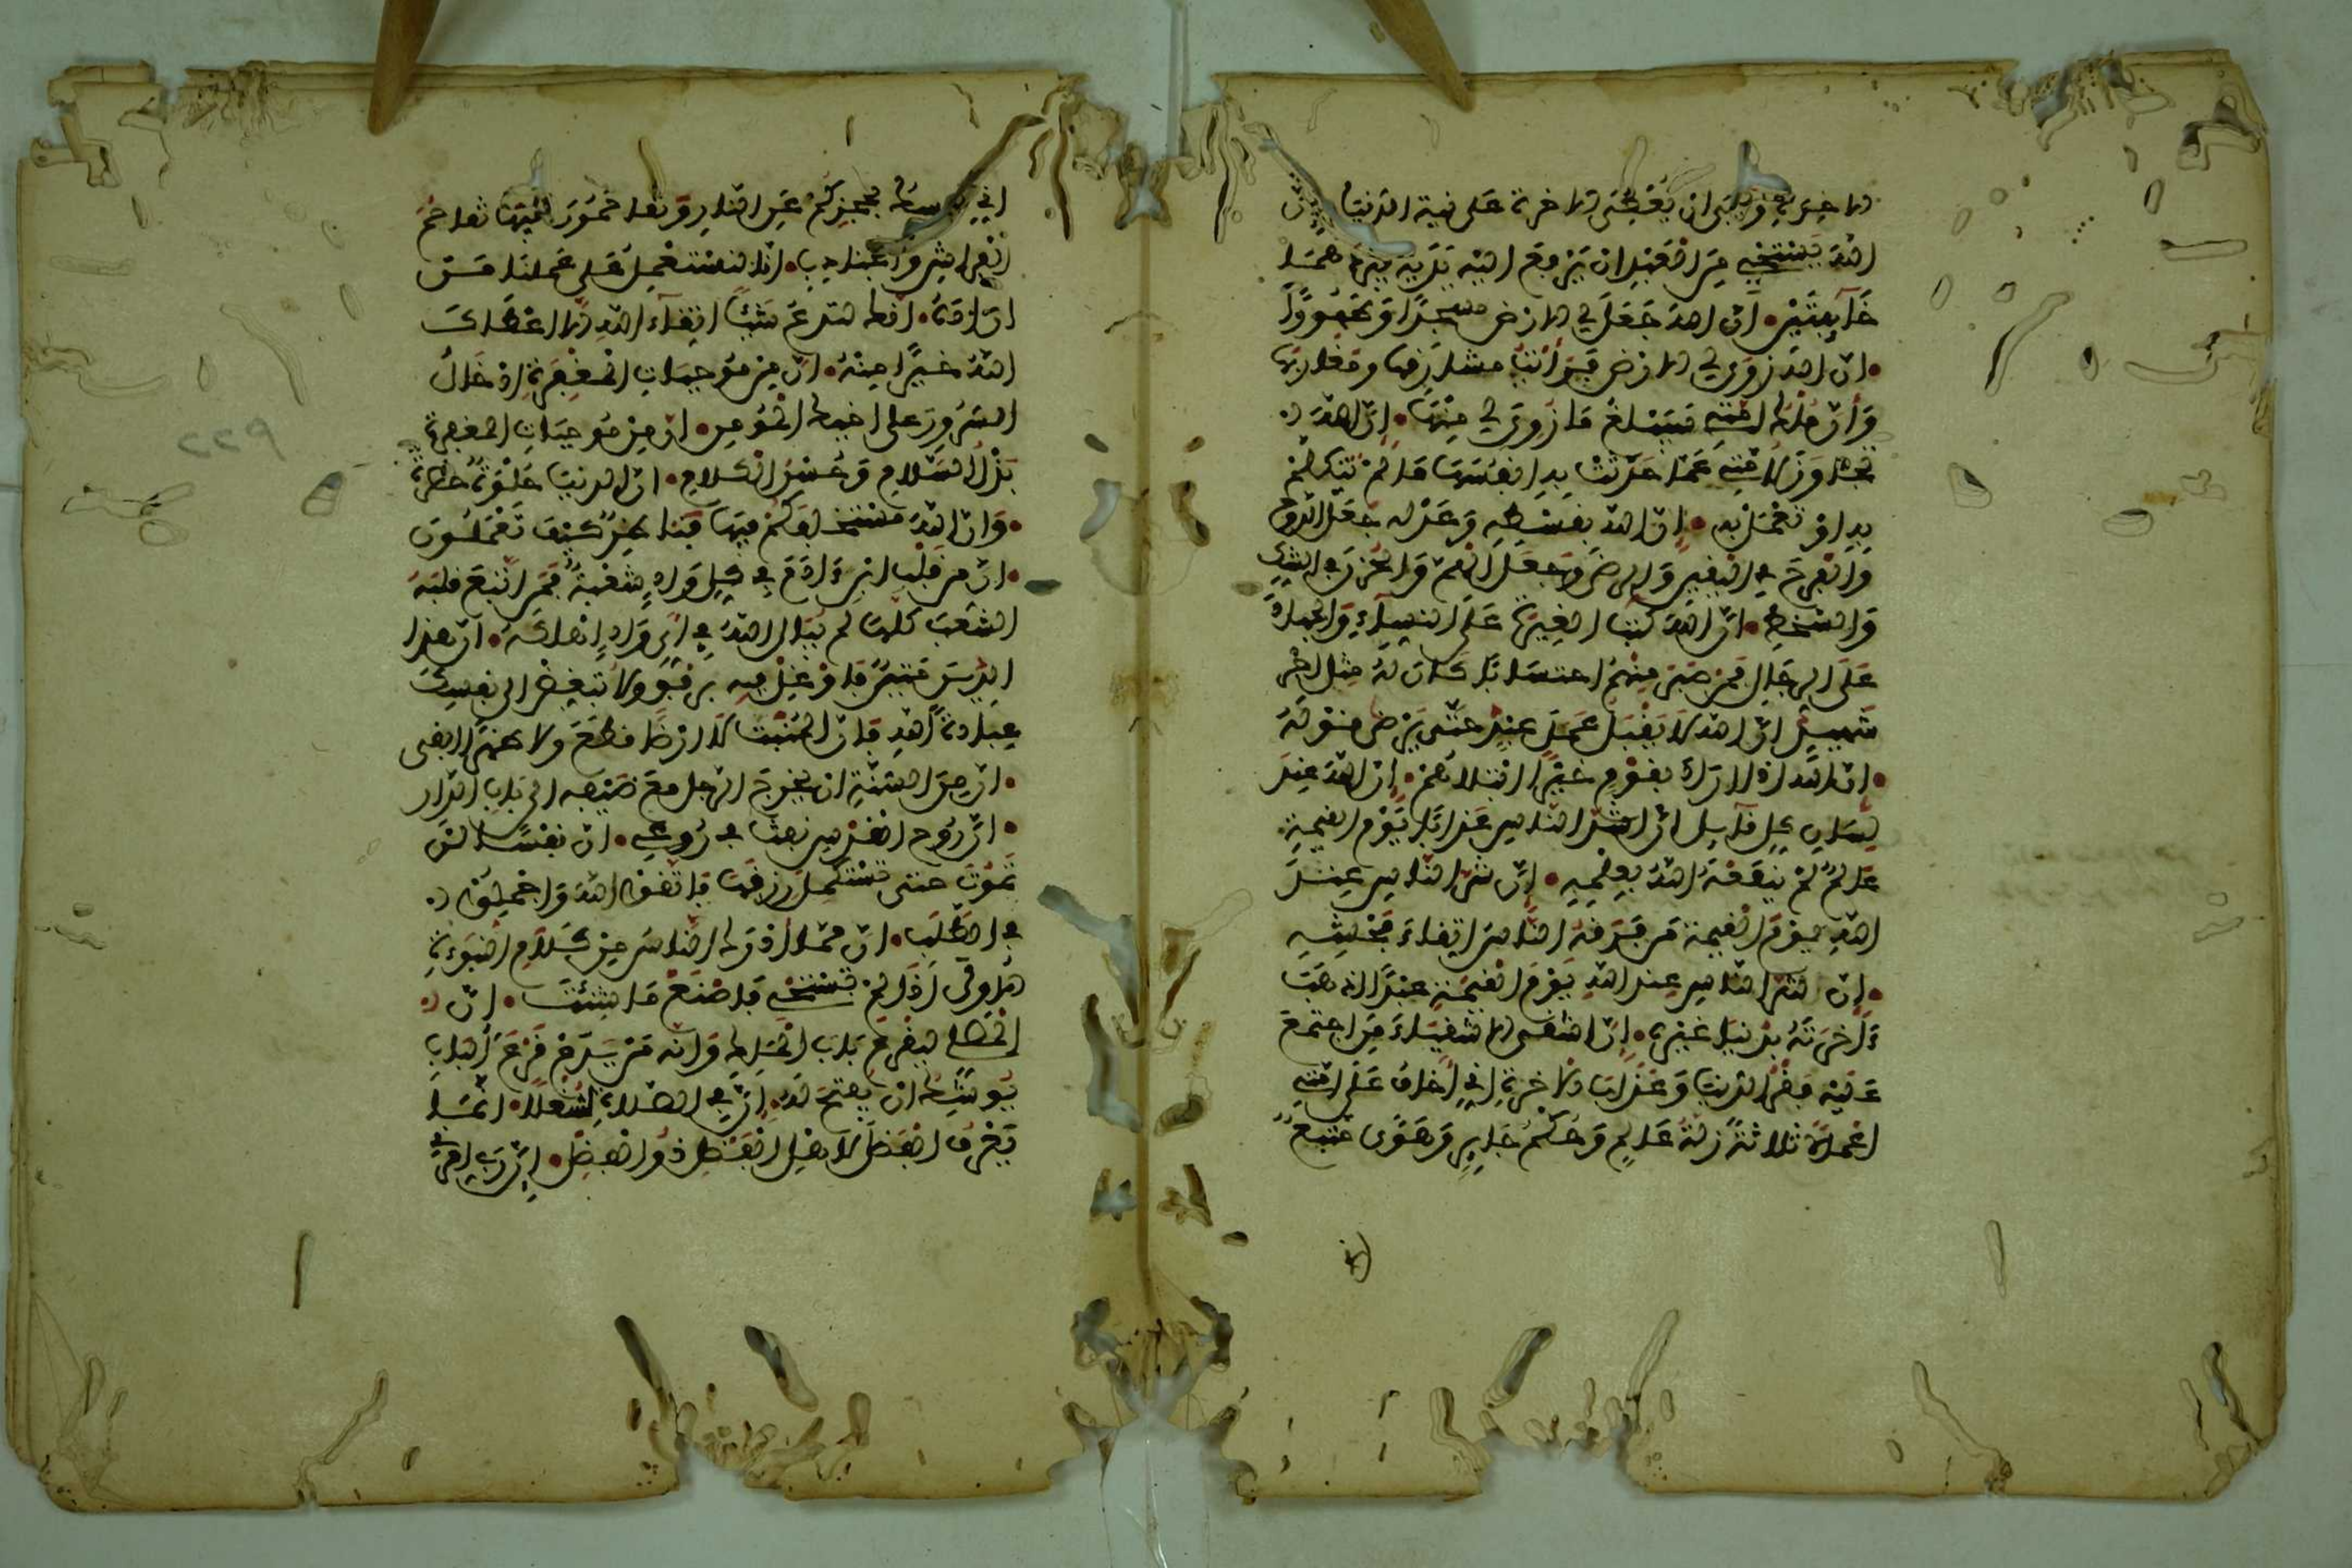 الاخرة ويابى ان يعطي الاخرة على نية الدنيا ان
الله يستحيي من العبد ان يرفع اليه يديه فيردهما
خآئبتين • ان الله جعل لي الارض مسجدا وطهورا
• ان الله زوى لي الارض فرأيت مشارقها ومغاربها
وان ملك امتي سيبلغ ما زوي لي منها • ان الله
تجاوز لامتي عما حدثت به انفسها ما لم تتكلم
به او تعمل به • ان الله بقسطه وعدله جعل الروح
والفرج في اليقين والرضى وجعل الهم والحزن في الشك
والسخط • ان الله كتب الغيرة على النساء والجهاد
على الرجال فمن صبر منهم احتسابا كان له مثل اجر
شهيد ان الله لا يقبل عمل عبد حتى يرضى قوله
• ان الله اذا اراد بقوم خيرا ابتلاهم • ان الله عند
لسان كل قآئل ان اشد الناس عذابا يوم القيمة
عالم لم ينفعه الله بعلمه • ان شر الناس عند
الله يوم القيمة من فرقه الناس اتقاء فحشه
• ان شر الناس عند الله يوم القيمة عبد اذهب
ءاخرته بدنيا غيره • ان اشقى الاشقياء من اجتمع
عليه فقر الدنيا وعذاب الاخرة اني اخاف على امتي
اعمالا ثلاثة زلة عالم وحكم جاير وهوى متبع
اني ممسك بحجزكم عن النار وتقاحمون فيها تقاحم
الفراش والجنادب • انا لا نستعمل على عملنا من
اراده • انك لا تدع شيئا اتقآء الله الا اعطاك
الله خيرا منه • ان من موجبات المغفرة ادخال
السرور على اخيك المؤمن • ان من موجبات المغفرة
بذل السلام وحسن الكلام • ان الدنيا حلوة خضرة
• وان الله مستخلفكم فيها فناظر كيف تعملون
• ان من قلب ابن ءادم في كل واد شعبة فمن اتبع قلبه
الشعب كلها لم يبال الله في اي واد اهلكه • ان هذا
الدين متين فاوغل فيه برفق ولا تبغض الى نفسك
عبادة الله فان المنبت لا ارضا قطع ولا ظهرا ابقى
• ان من السنة ان يخرج الرجل مع ضيفه الى باب الدار
• ان روح القدس نفث في روعي • ان نفسا لن
تموت حتى تستكمل رزقها فاتقوا الله واجملوا
في الطلب • ان مما ادرك الناس من كلام النبوءة
الاولى اذا لم تستحي فاصنع ما شئت • ان
المصلي ليقرع باب الملك وانه من يدم قرع الباب
يوشك ان يفتح له • ان في الصلاة لشغلا • انما
يعرف الفضل لاهل الفضل ذوو الفضل •
٢٢٩